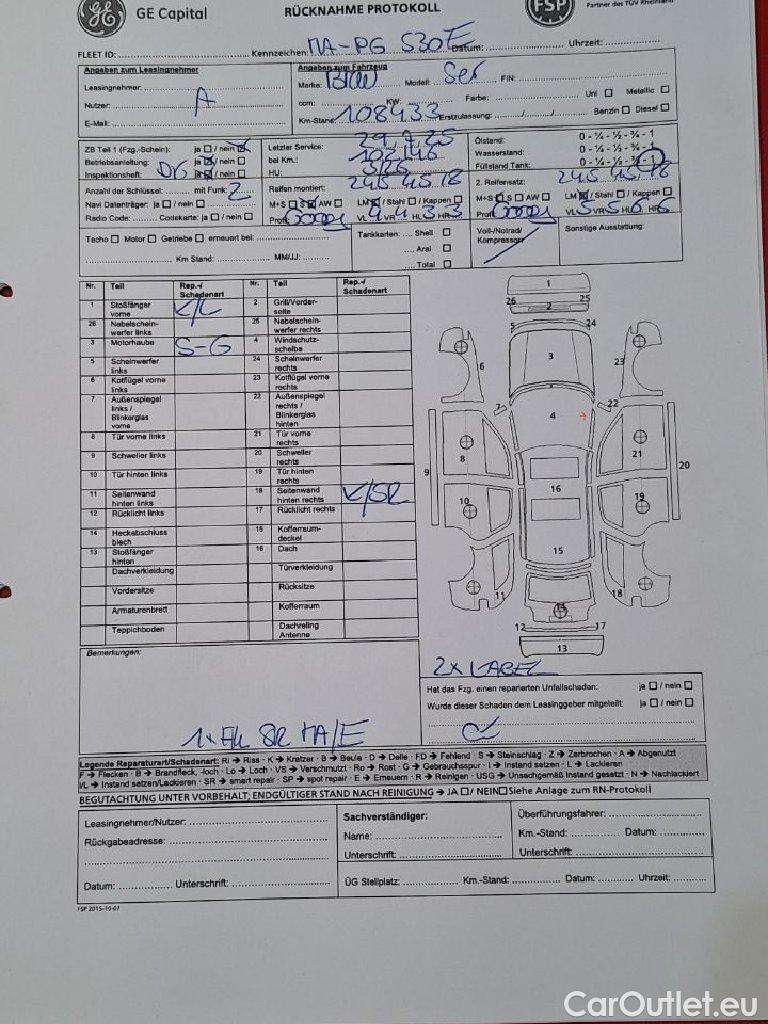 GE
GE Capital
RÜCKNAHME PROTOKOLL
FSP
Partner des TÜV Rheinland
FLEET ID: Kennzeichen: MA-PG 530E Datum: Uhrzeit:
Angaben zum Leasingnehmer
Leasingnehmer:
Nutzer: A
E-Mail:
Angaben zum Fahrzeug
Marke: Modell: 5er FIN:
ccm: KW: Farbe: Uni Metallic
Km-Stand: 108433 Erstzulassung: Benzin Diesel
ZB Teil 1 (Fzg.-Schein): ja / nein
Betriebsanleitung: ja / nein
Inspektionsheft: ja / nein
Letzter Service: 29.7.25
bei Km.:
HU: 5/26
Ölstand: 0 - ¼ - ½ - ¾ - 1
Wasserstand: 0 - ¼ - ½ - ¾ - 1
Füllstand Tank: 0 - ¼ - ½ - ¾ - 1
Anzahl der Schlüssel: mit Funk: 2
Navi Datenträger: ja / nein
Radio Code: Codekarte: ja / nein
Reifen montiert: 245 45 18
M+S S AW LM / Stahl / Kappen
Profil VL 4 VR 4 HL 3 HR 3
2. Reifensatz: 245 45 18
M+S S AW LM / Stahl / Kappen
Profil VL 5 VR 5 HL 6 HR 6
Tacho Motor Getriebe erneuert bei:
Km Stand: MM/JJ:
Tankkarten: Shell
Aral
Total
Voll-/Notrad/
Kompressor
Sonstige Ausstattung:
Nr. Teil Rep.-/ Schadenart Nr. Teil Rep.-/ Schadenart
1 Stoßfänger vorne K/L 2 Grill/Vorderseite
26 Nebelscheinwerfer links 25 Nebelscheinwerfer rechts
3 Motorhaube S-G 4 Windschutzscheibe
5 Scheinwerfer links 24 Scheinwerfer rechts
6 Kotflügel vorne links 23 Kotflügel vorne rechts
7 Außenspiegel links / Blinkerglas vorne 22 Außenspiegel rechts / Blinkerglas hinten
8 Tür vorne links 21 Tür vorne rechts
9 Schweller links 20 Schweller rechts
10 Tür hinten links 19 Tür hinten rechts
11 Seitenwand hinten links 18 Seitenwand hinten rechts K/SR
12 Rücklicht links 17 Rücklicht rechts
14 Heckabschluss blech 15 Kofferraum-deckel
13 Stoßfänger hinten 16 Dach
Dachverkleidung Türverkleidung
Vordersitze Rücksitze
Armaturenbrett Kofferraum
Teppichboden Dachreling Antenne
1
26 2 25
5 24
6 3 23
7 4 22
8 21
9 20
10 16 19
15
11 14 18
12 17
13
Bemerkungen:
2x LABEL
Hat das Fzg. einen reparierten Unfallschaden: ja / nein
Wurde dieser Schaden dem Leasinggeber mitgeteilt: ja / nein
Legende Reparaturart/Schadenart: RI → Riss - K → Kratzer - B → Beule - D → Delle - FD → Fehlend - S → Steinschlag - Z → Zerbrochen - A → Abgenutzt
F → Flecken - IB → Brandfleck, -loch - Lo → Loch - VS → Verschmutzt - Ro → Rost - G → Gebrauchsspur - I → Instand setzen - L → Lackieren
I/L → Instand setzen/Lackieren - SR → smart repair - SP → spot repair - E → Erneuern - R → Reinigen - USG → Unsachgemäß instand gesetzt - N → Nachlackiert
BEGUTACHTUNG UNTER VORBEHALT; ENDGÜLTIGER STAND NACH REINIGUNG → JA / NEIN Siehe Anlage zum RN-Protokoll
Leasingnehmer/Nutzer:
Rückgabeadresse:
Datum: Unterschrift:
Sachverständiger:
Name:
Unterschrift:
Überführungsfahrer:
Km.-Stand: Datum:
Unterschrift:
ÜG Stellplatz: Km.-Stand: Datum: Uhrzeit:
FSP 2015-10-07
CarOutlet.eu